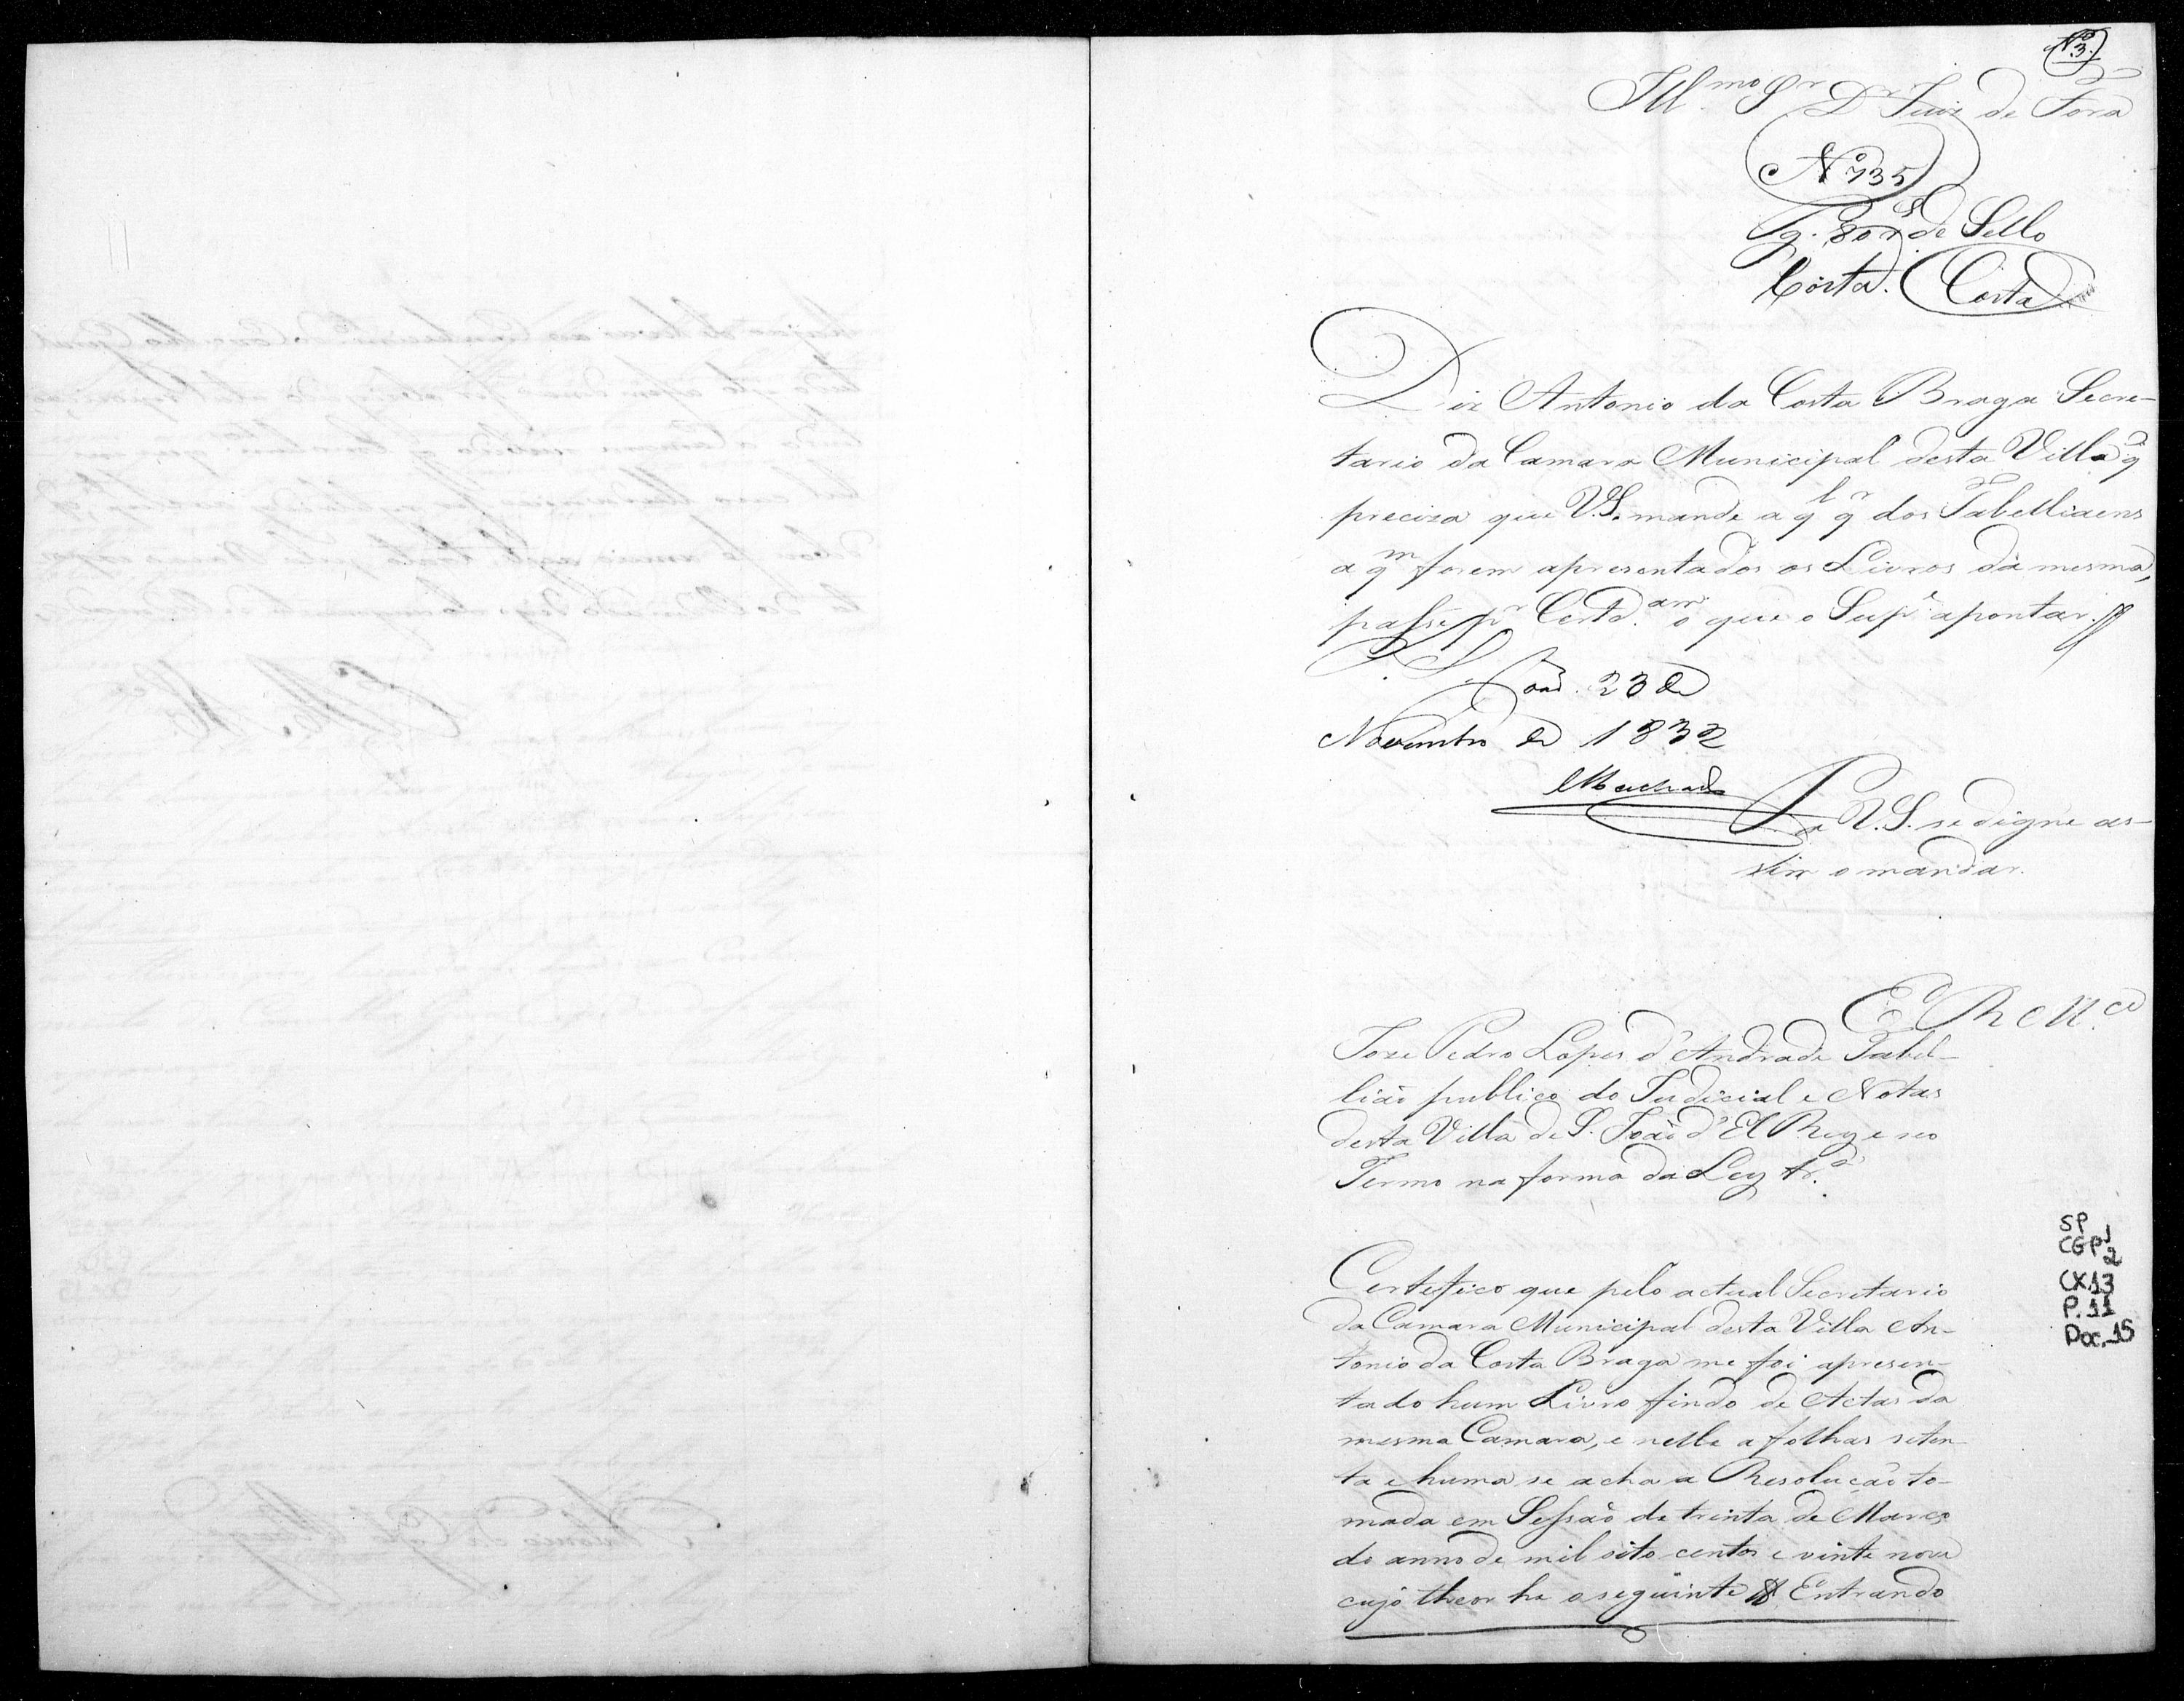 Nº 3.
Illmo Sr Dr Juiz de Fora
Nº 735
Pg. 80 rs de Sello
Costa. Costa
Diz Antonio da Costa Braga Secre-
tario da Camara Municipal desta Villa q
preciza que V.S. mande a qlqr dos Tabelliaens
a qm forem apresentados os Livros da mesma,
passe pr Certd.am o que o Supe apontar.
P. S. Joaõ. 23 de
Novembro de 1832
Machado
Pa V.S. se digne as-
sim o mandar.
E R Mce
Joze Pedro Lopes d'Andrade Tabel-
liaõ publico do Judicial e Notas
desta Villa de S. Joaõ d'El Rey e seo
Termo na forma da Ley &.a
Certefico que pelo actual Secretario
da Camara Municipal desta Villa An-
tonio da Costa Braga me foi apresen-
tado hum Livro findo de Actas da
mesma Camara, e nelle a folhas seten-
ta e huma se acha a Resoluçaõ to-
mada em Sessaõ de trinta de Março
do anno de mil oito centos e vinte nove
cujo theor he o seguinte Entrando
SP
CGP1
2
CX.13
P.11
Doc.15